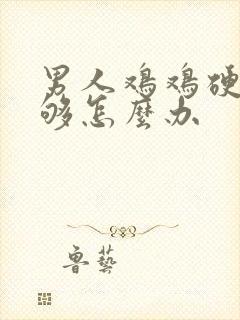 男人鸡鸡硬
够怎麼办
鲁藝